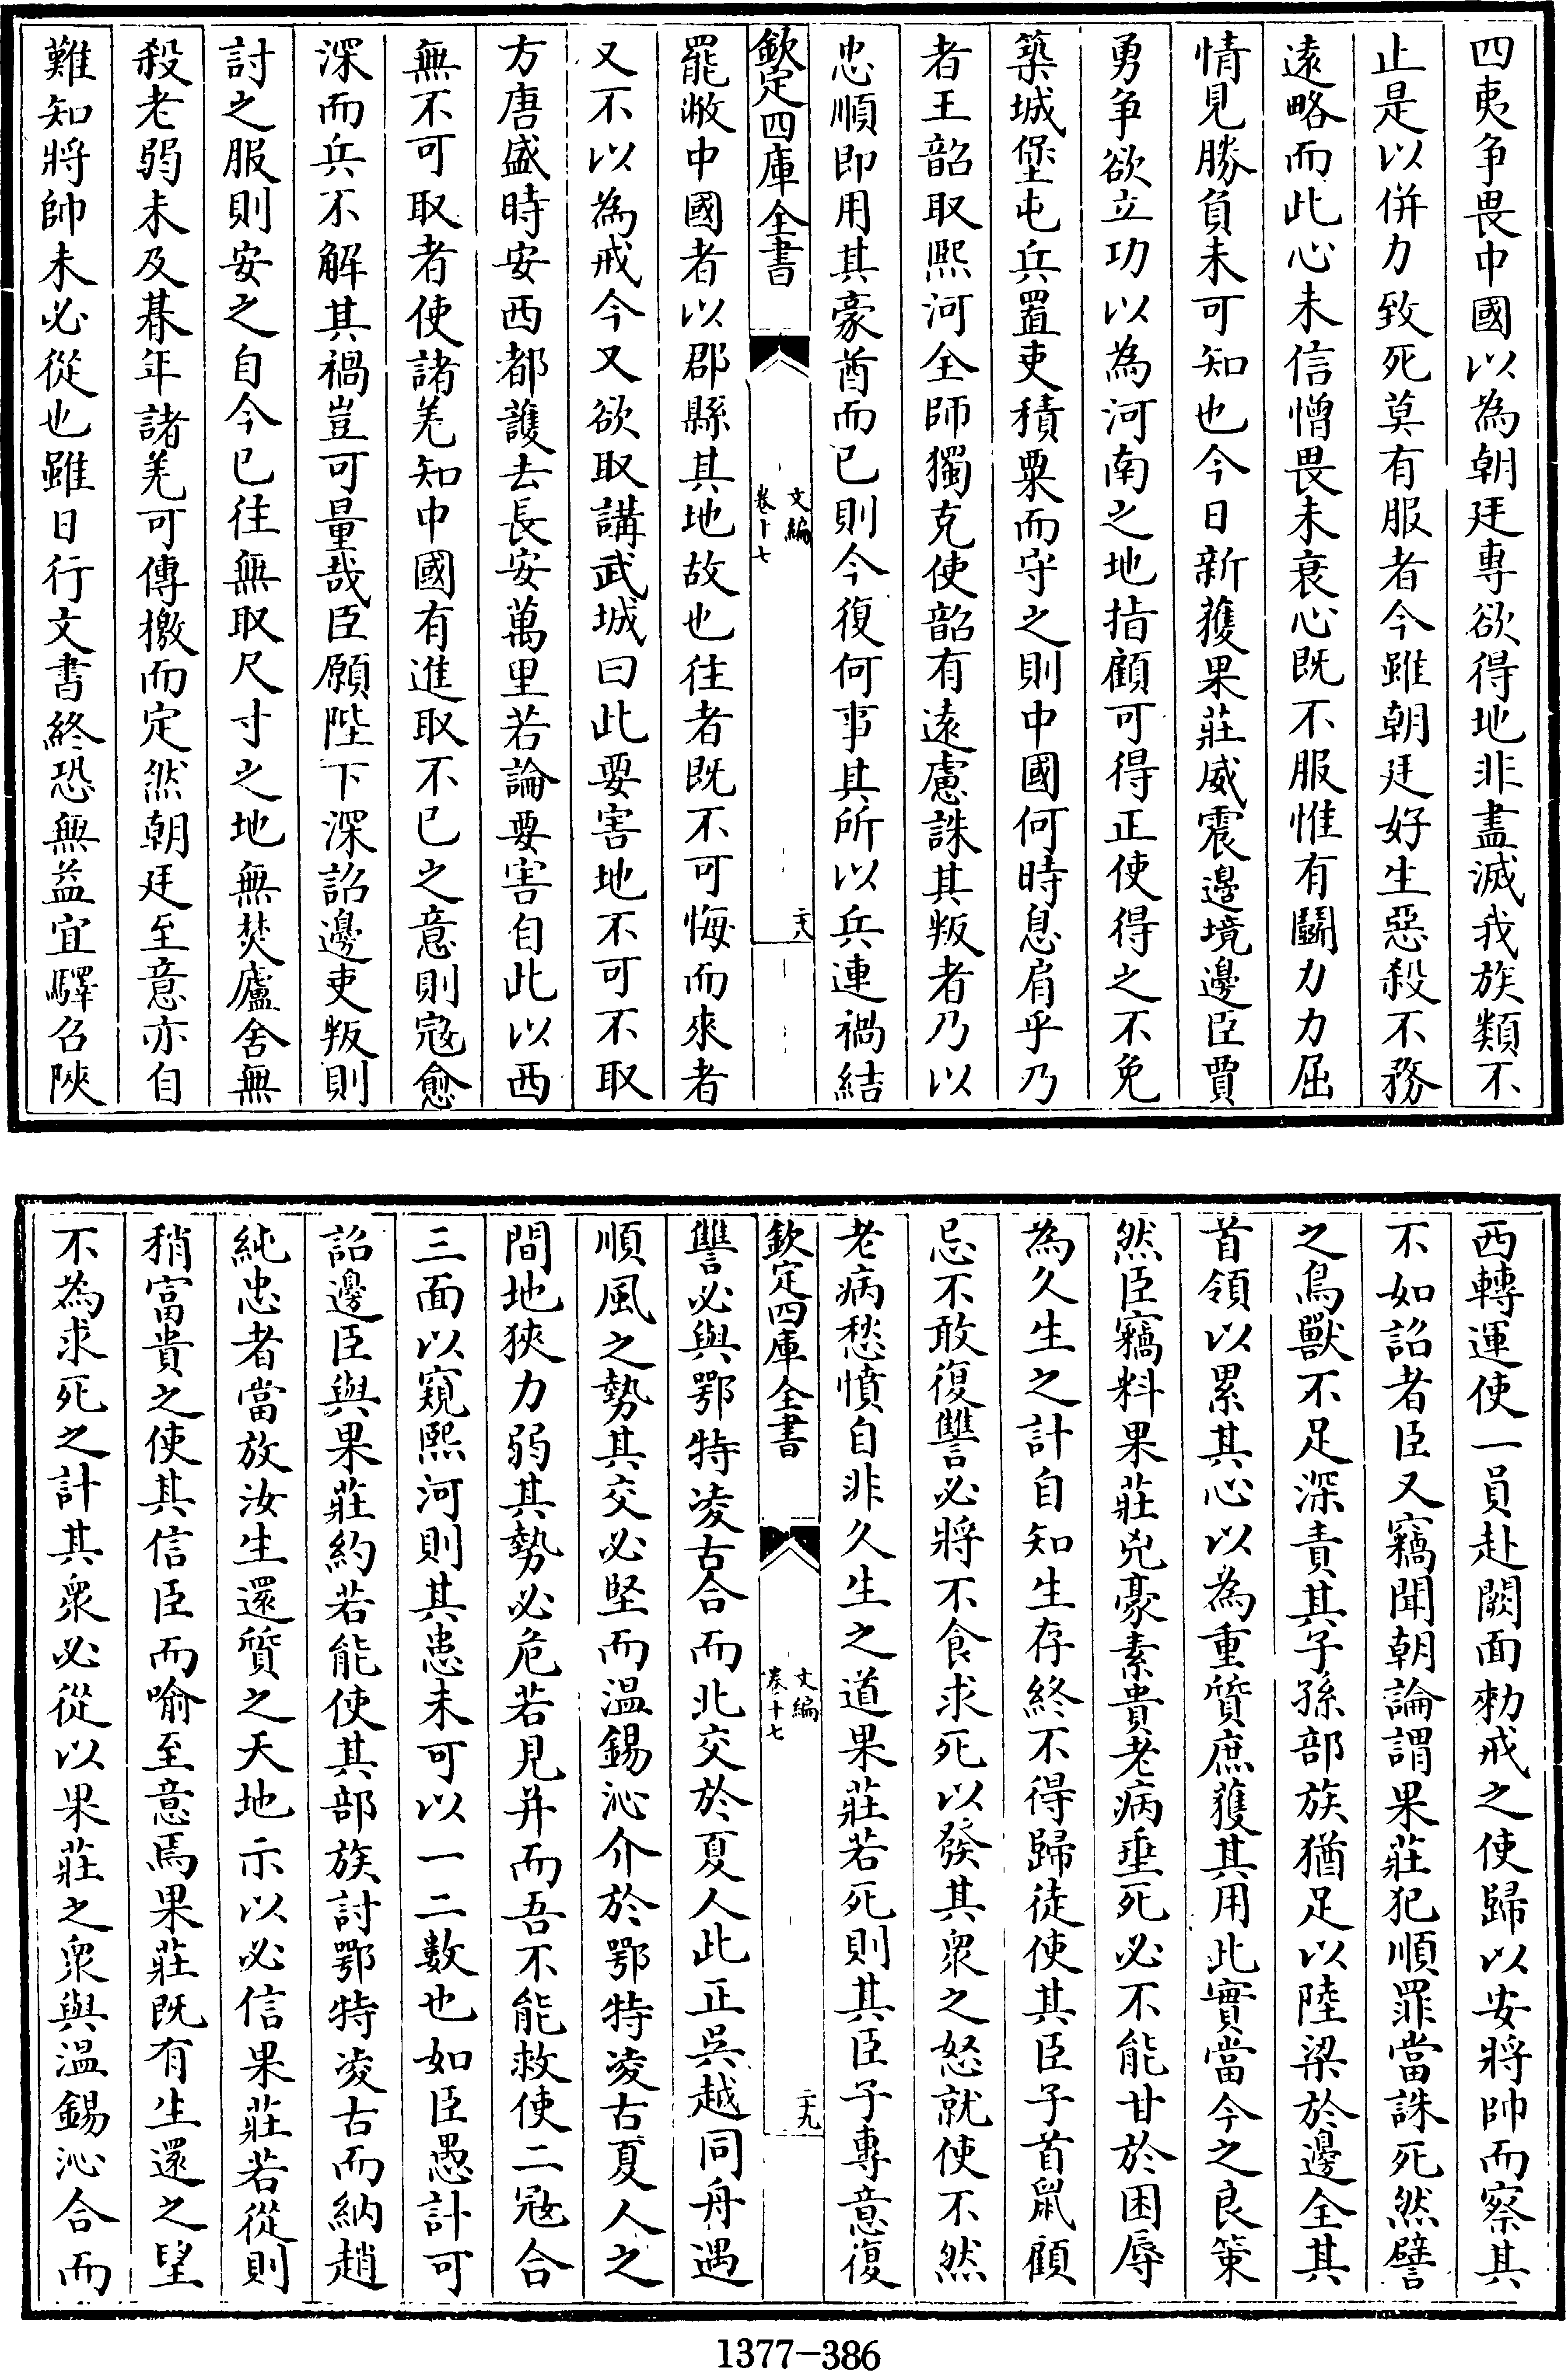 四夷争畏中國以為朝廷専欲得地非盡滅我族類不
止是以併力致死莫有服者今雖朝廷好生惡殺不務
逺略而此心未信憎畏未衰心既不服惟有鬭力力屈
情見勝負未可知也今日新獲果莊威震邊境邊臣賈
勇争欲立功以為河南之地指顧可得正使得之不免
築城堡屯兵置吏積粟而守之則中國何時息肩乎乃
者王韶取熙河全師獨克使韶有逺慮誅其叛者乃以
忠順即用其豪酋而已則今復何事其所以兵連禍結
欽定四庫全書
文編
卷十七
二十八
罷敝中國者以郡縣其地故也往者既不可悔而來者
又不以為戒今又欲取講武城曰此要害地不可不取
方唐盛時安西都護去長安萬里若論要害自此以西
無不可取者使諸羌知中國有進取不已之意則寇愈
深而兵不解其禍豈可量哉臣願陛下深詔邊吏叛則
討之服則安之自今已徃無取尺寸之地無焚廬舍無
殺老弱未及朞年諸羌可傳檄而定然朝廷至意亦自
難知將帥未必從也雖日行文書終恐無益宜驛召陜
西轉運使一員赴闕面勅戒之使歸以安將帥而察其
不如詔者臣又竊聞朝論謂果莊犯順罪當誅死然譬
之鳥獸不足深責其子孫部族猶足以陸梁於邊全其
首領以累其心以為重質庶獲其用此實當今之良策
然臣竊料果莊兇豪素貴老病垂死必不能甘於困辱
為久生之計自知生存終不得歸徒使其臣子首鼠顧
忌不敢復讐必將不食求死以發其衆之怒就使不然
老病愁憤自非久生之道果莊若死則其臣子專意復
欽定四庫全書
文編
卷十七
二十九
讐必與鄂特凌古合而北交於夏人此正吳越同舟遇
順風之勢其交必堅而温錫沁介於鄂特凌古夏人之
間地狹力弱其勢必危若見并而吾不能救使二寇合
三面以窺熙河則其患未可以一二數也如臣愚計可
詔邊臣與果莊約若能使其部族討鄂特凌古而納趙
純忠者當放汝生還質之天地示以必信果莊若從則
稍富貴之使其信臣而喻至意焉果莊既有生還之望
不為求死之計其衆必從以果莊之衆與温錫沁合而
1377-386